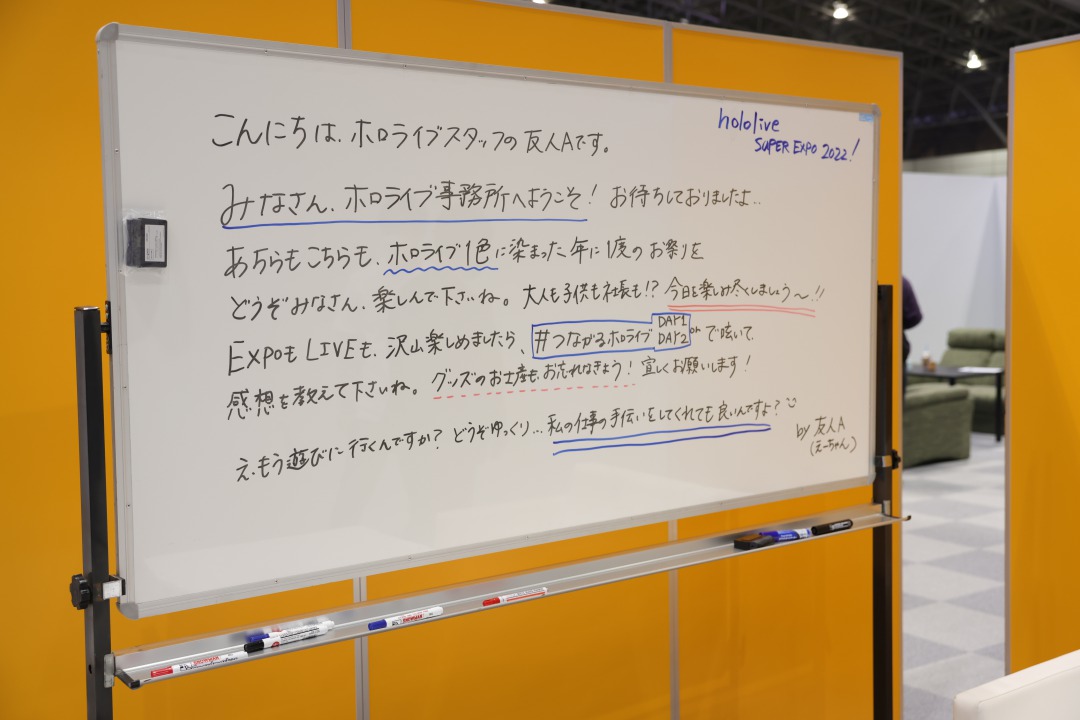 hololive
SUPER EXPO 2022!
こんにちは、ホロライブスタッフの友人Aです。
みなさん、ホロライブ事務所へようこそ! お待ちしておりましたよ..
あちらもこちらも、ホロライブ1色に染まった年に1度のお祭りを
どうぞみなさん、楽しんで下さいね。大人も子供も社長も!? 今日を楽しみ尽くしましょう〜!!
EXPOもLIVEも、沢山楽しめましたら、#つながるホロライブ DAY1 or DAY2 で呟いて、
感想を教えて下さいね。グッズのお土産も、お忘れなきよう! 宜しくお願いします!
え、もう遊びに行くんですか? どうぞゆっくり... 私の仕事の手伝いをしてくれても良いんですよ?
by 友人A
(えーちゃん)